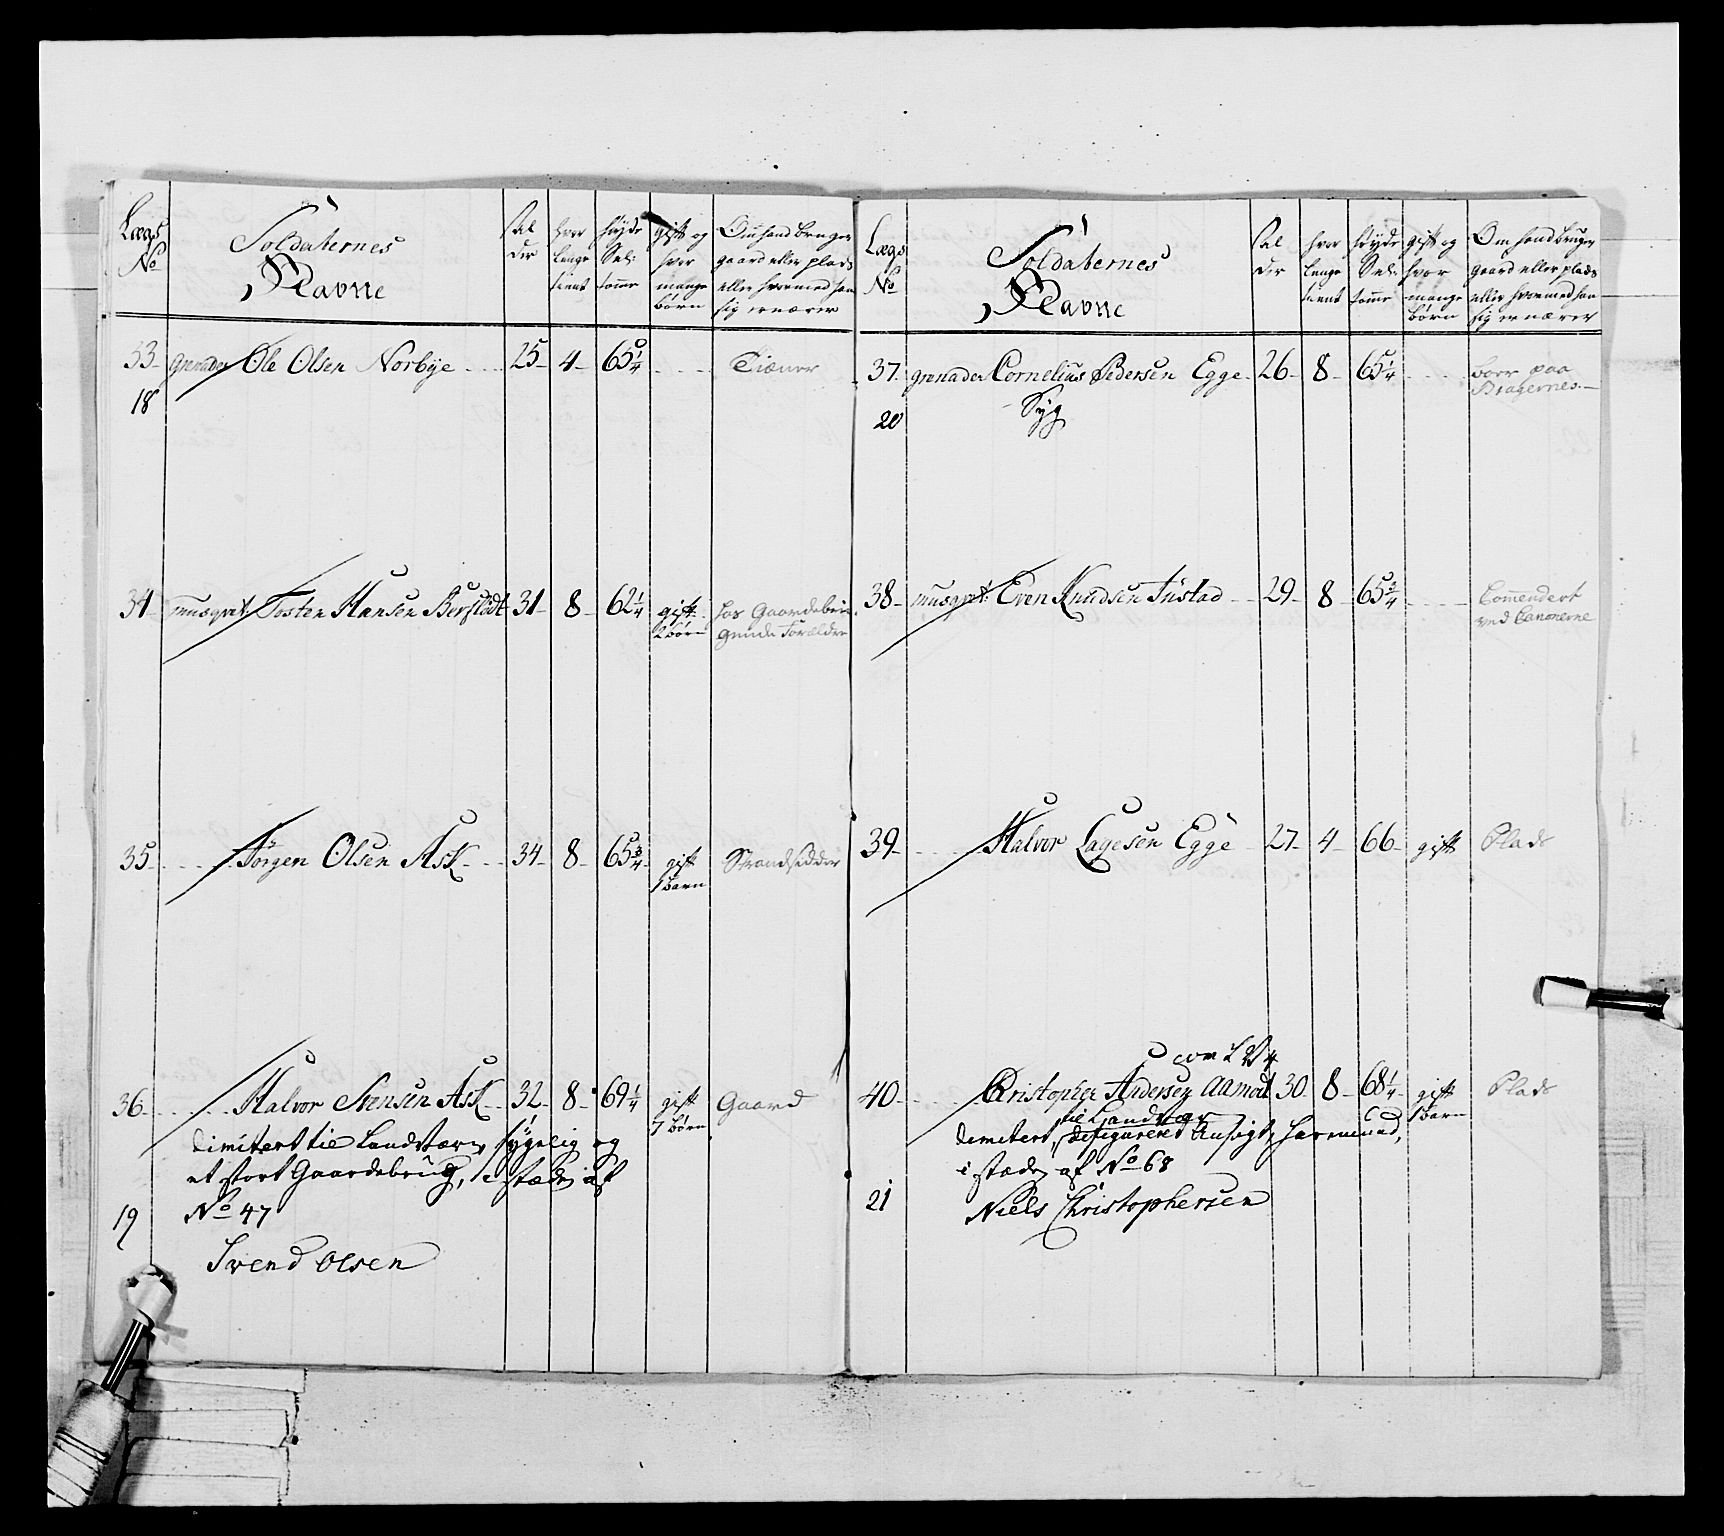 Lægs No
Soldaternes Navne
Al der
hvor lenge tient
høyde Sel: tomme
gift og hvor mange børn
Om hand bruger gaard eller plads eller hvormed han sig ernærer
33 grenader Ole Olsen Norbye 25 4 65 1/4 Tiæner
18
34 musqvet Torsten Hansen Berstad 31 8 62 1/4 gift 2 børn hos Gaardebru
gende Forældre
35 Jørgen Olsen Ask 34 8 65 3/4 gift 1 barn Strandsidder
36 Halvor Svensen Ask 32 8 69 1/4 gift 7 børn Gaard
dimitert til Landværn, sygelig og
et stort Gaardebrug, i stæden af
19 No 47
Svend Olsen
Lægs No
Soldaternes Navne
Al der
hvor lenge tient
høyde Sel: tomme
gift og hvor mange børn
Om hand bruger gaard eller plads eller hvormed han sig ernærer
37 grenader Cornelius Pedersen Egge 26 8 65 1/4 boer paa
Bragernes
20 Syg
38 musqvet: Even Knudsen Tustad 29 8 65 3/4 Commendert
ved Canonerne
39 Halvor Lagesen Egge 27 4 66 gift Plads
40 Christopher Andersen Aamodt 30 8 68 1/4 gift 1 barn Plads
til Landvær
demitert, desfigureret Ansigt,
i stæden af No 68
21 Niels Christophersen